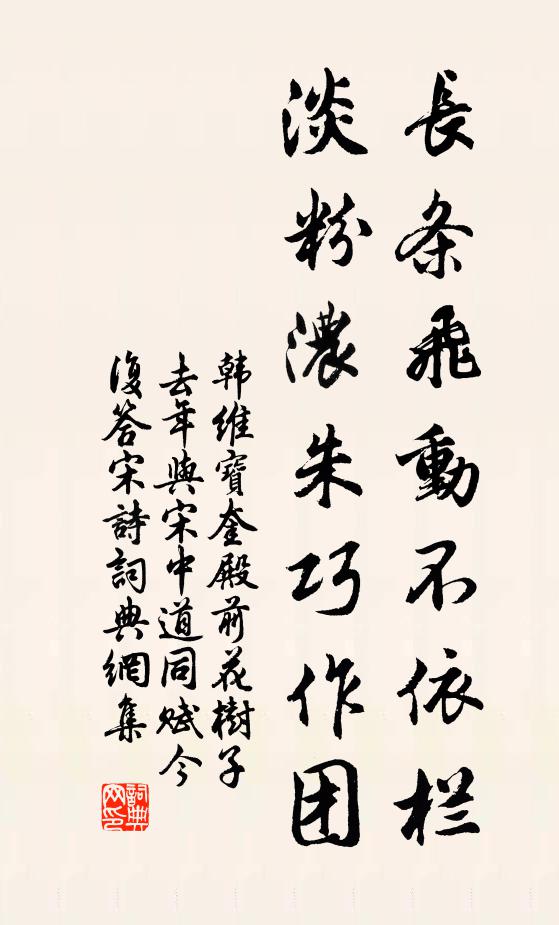 長条飛動不依栏
淡粉濃朱巧作团
韩維寶奎殿前花樹子
去年與宋中道同赋今
復答宋詩詞典網集
詞典
网印